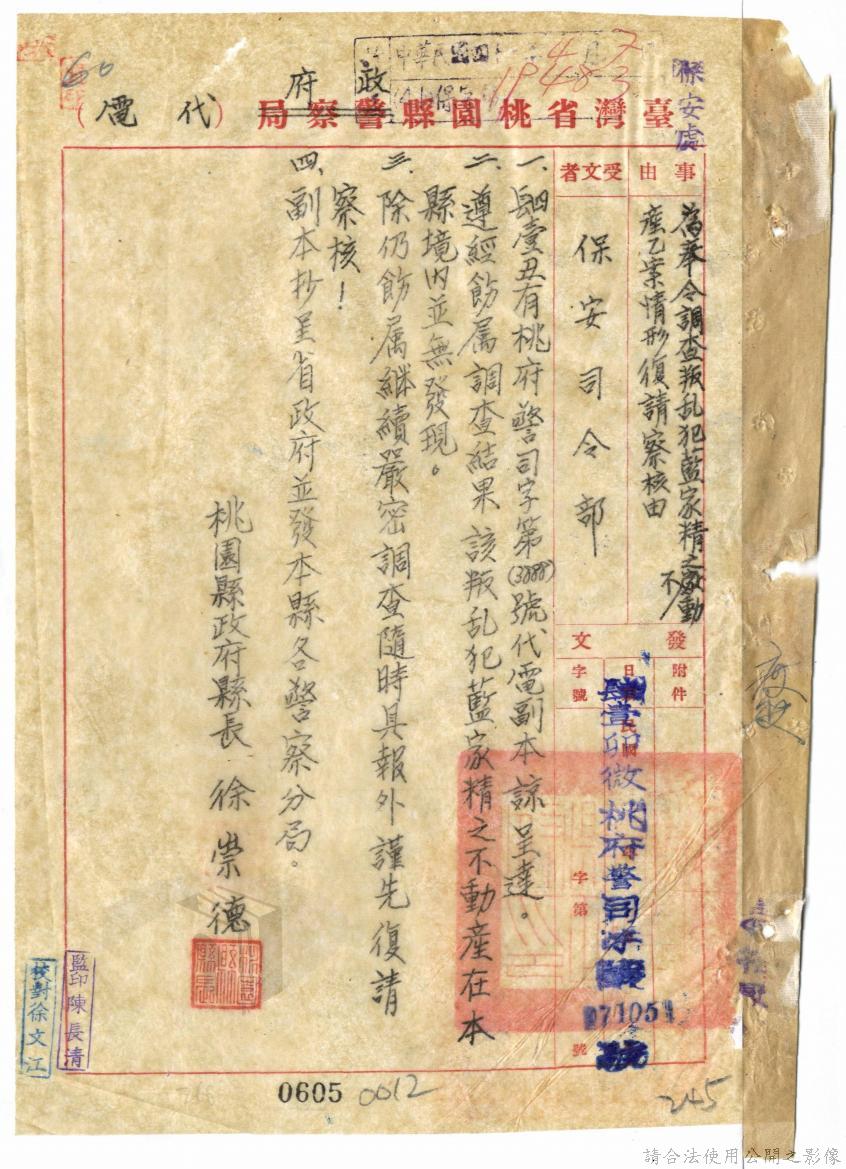 保安處
臺灣省桃園縣警察局
政府
(代電)
事由
為奉令調查叛乱犯藍家精之不動
產乙案情形復請察核由
受文者
保安司令部
發文
附件
日
字號
字第
號
肆壹卯微桃府警司
071051
號
一、肆壹丑有桃府警司字第(3888)號代電副本諒呈達。
二、遵經飭属調查結果該叛乱犯藍家精之不動產在本
縣境内並無發現。
三、除仍飭属継續嚴密調查隨時具報外謹先復請
察核！
四、副本抄呈省政府並發本縣各警察分局。
桃園縣政府縣長 徐崇德
監印陳長清
校對徐文江
0605
0012
245
請合法使用公開之影像